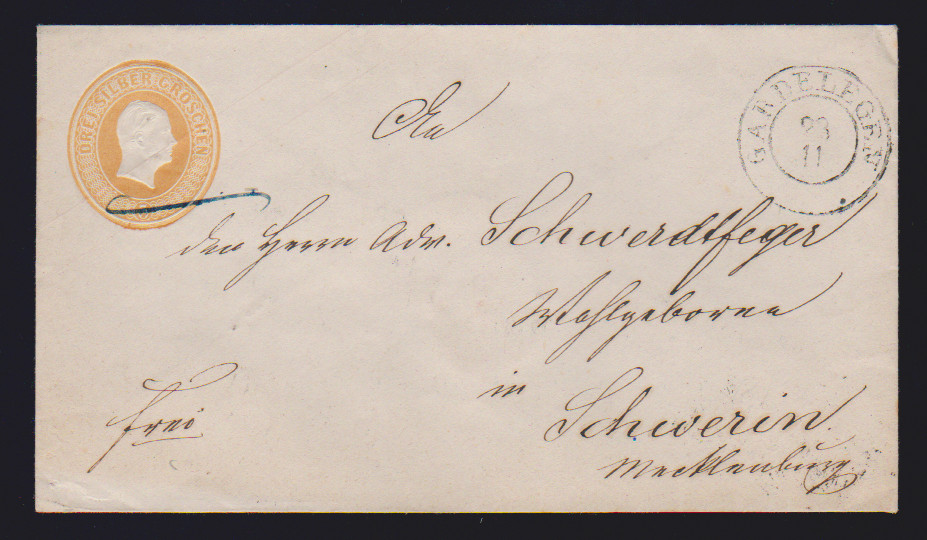 DREI SILBER GROSCHEN
GARDELEGEN
23
11
An
den Herrn Adv. Schwerdtfeger
Wohlgeboren
in
Schwerin.
Mecklenburg
frei